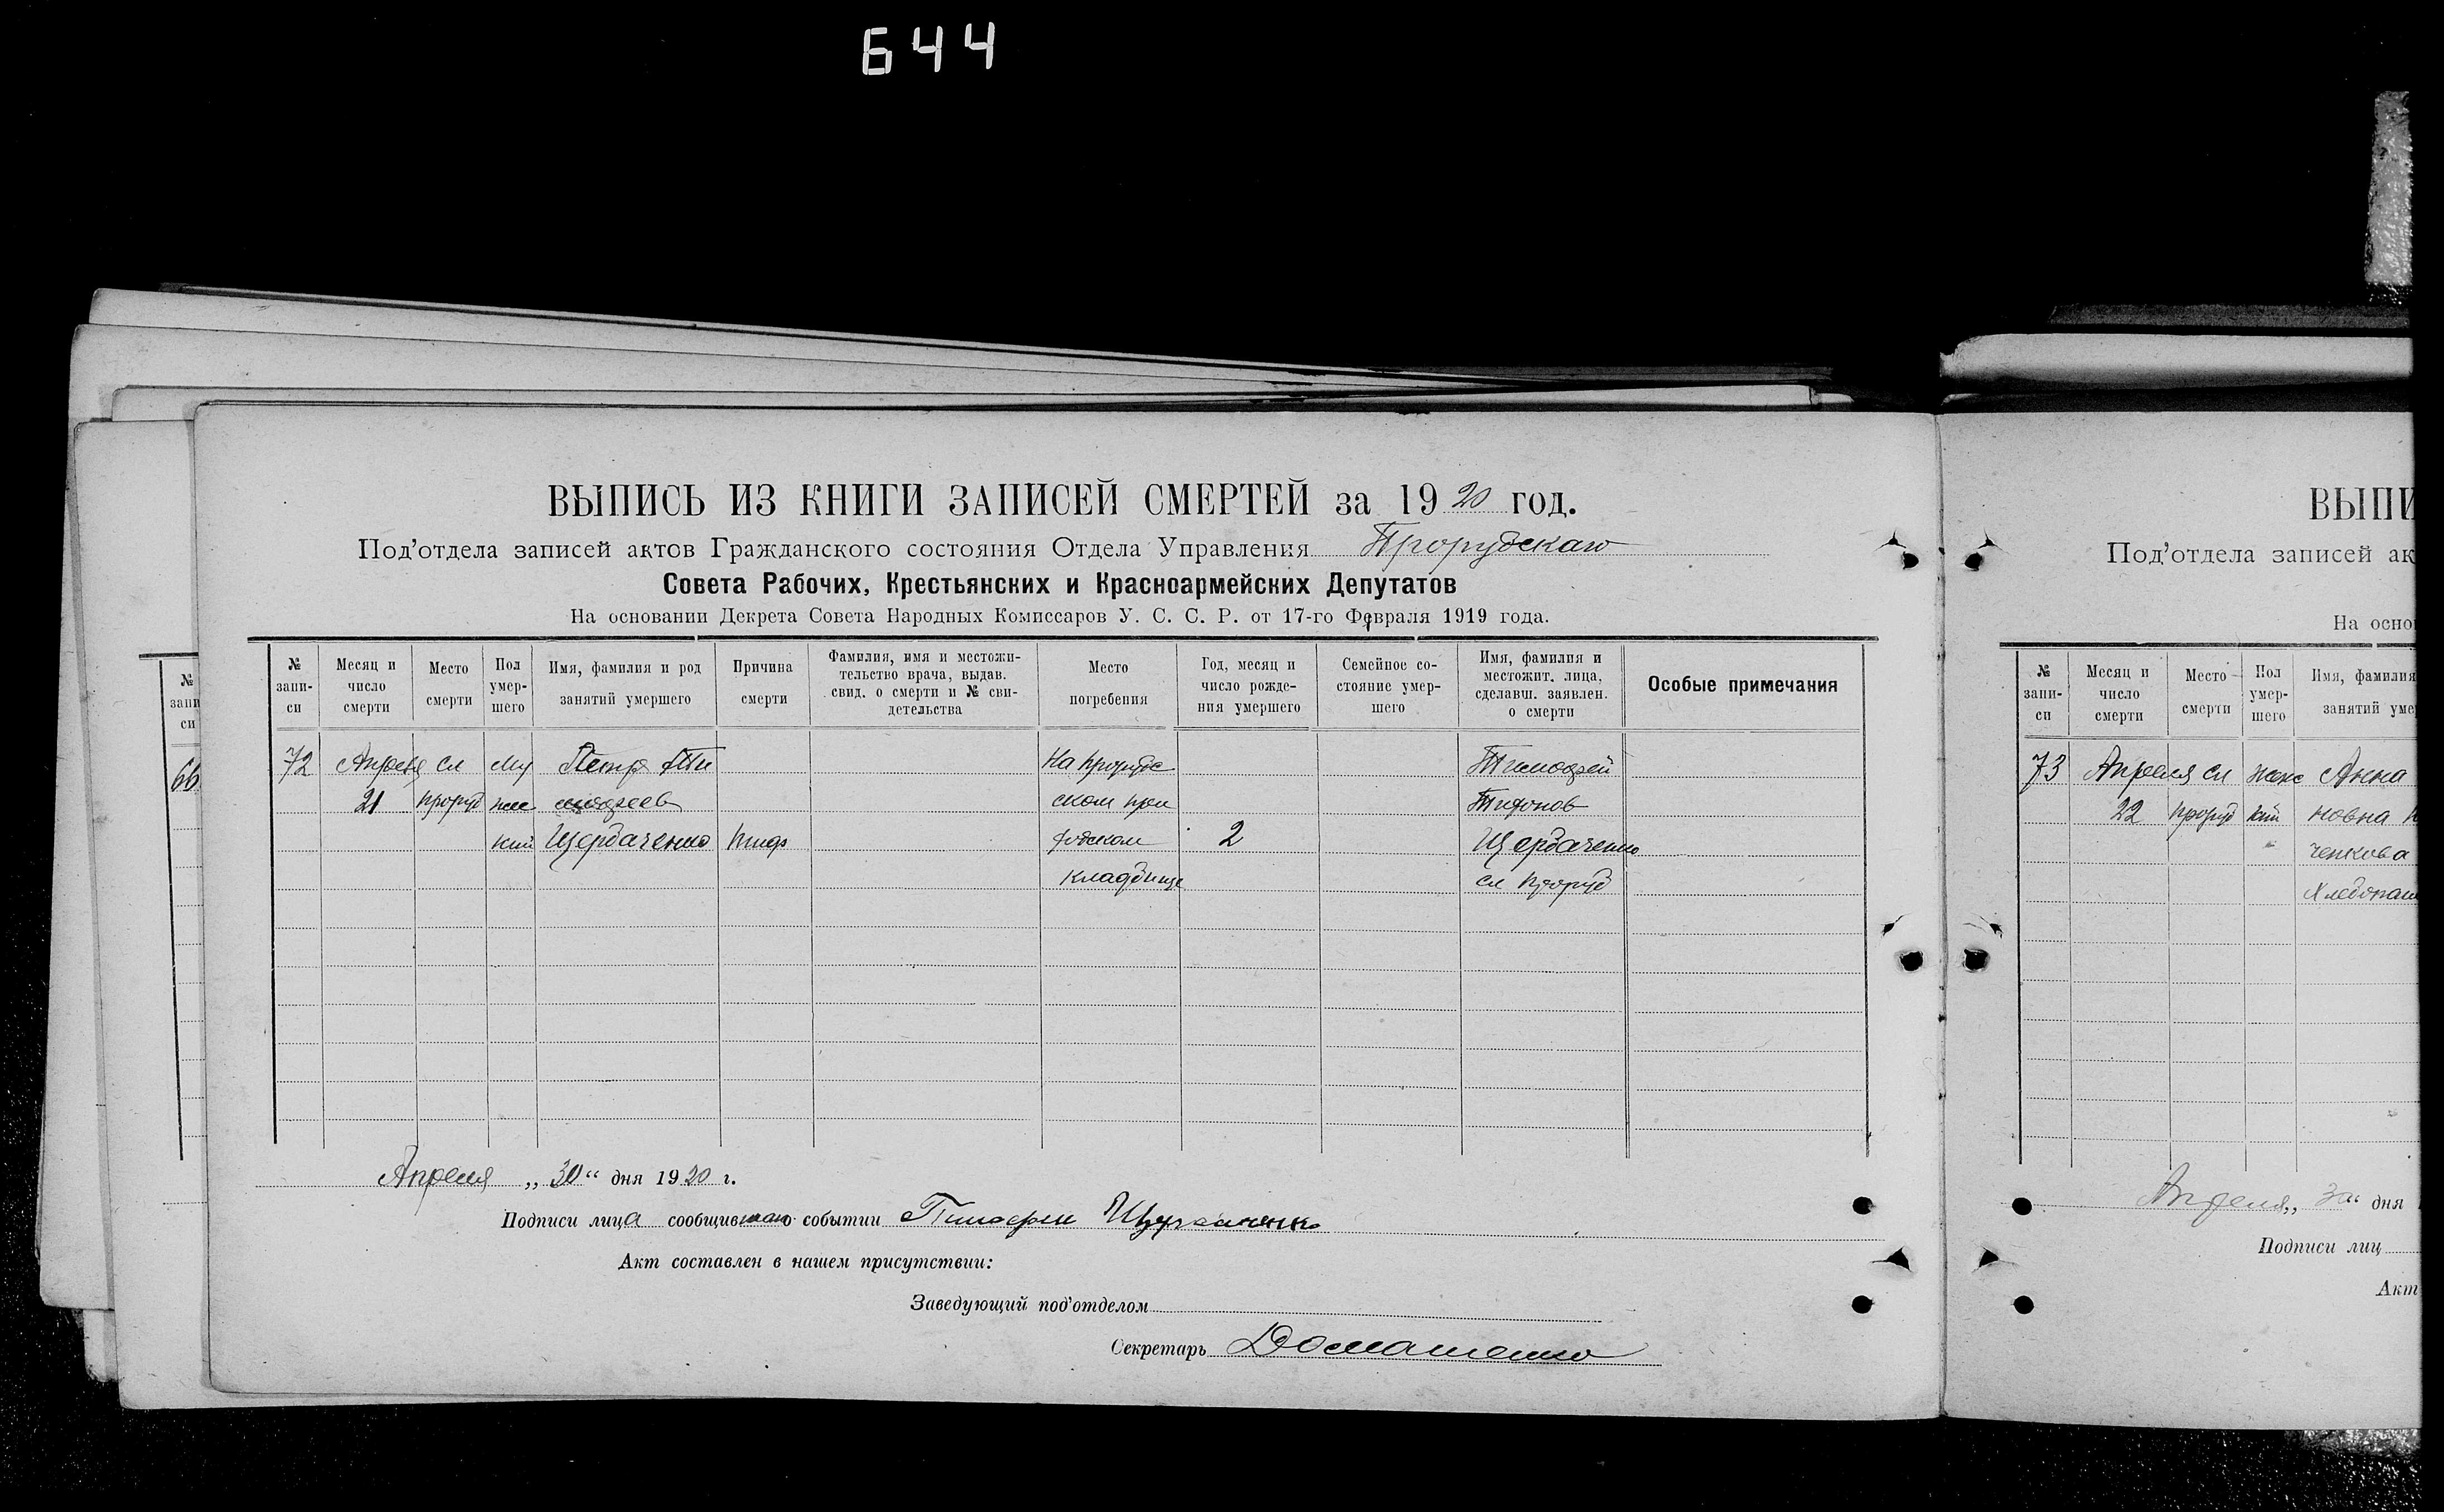 644
ВЫПИСЬ ИЗ КНИГИ ЗАПИСЕЙ СМЕРТЕЙ за 1920 год.
Под'отдела записей актов Гражданского состояния Отдела Управления Прорубскаго
Совета Рабочих, Крестьянских и Красноармейских Депутатов
На основании Декрета Совета Народных Комиссаров У. С. С. Р. от 17-го Февраля 1919 года.
№ запи- си
Месяц и число смерти
Место смерти
Пол умер- шего
Имя, фамилия и род занятий умершего
Причина смерти
Фамилия, имя и местожи- тельство врача, выдав. свид. о смерти и № сви- детельства
Место погребения
Год, месяц и число рожде- ния умершего
Семейное со- стояние умер- шего
Имя, фамилия и местожит. лица, сделавш. заявлен. о смерти
Особые примечания
72 Апреля сл Му Петр Ти На прорубс Тимофей
21 проруб жс мофеев ском при
кий Щербаченко тиф 2 Щербаченко
кладбище сл проруб
Апреля „30“ дня 1920 г.
Подписи лица сообщившаго событии Тимофей
Акт составлен в нашем присутствии:
Заведующий под'отделом
Секретарь Домашенко
№ запи си
66
ВЫПИ
Под'отдела записей ак
На осно
№ запи- си
Месяц и число смерти
Место смерти
Пол умер- шего
Имя, фамилия занятий уме
73 Апреля сл женс Анна
22 проруб кий новна
ченкова
Хлебопаш
Апреля „30“ дня
Подписи лиц
Акт